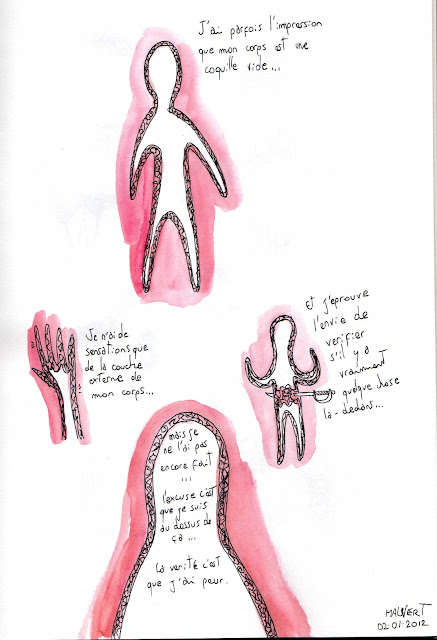 J'ai parfois l'impression
que mon corps est une
coquille vide...
Je n'ai de
sensations que
de la couche
externe de
mon corps...
Et j'éprouve
l'envie de
verifier
s'il y a
vraiment
quelque chose
là-dedans...
mais je
ne l'ai pas
encore fait
...
l'excuse c'est
que je suis
au dessus de
ça...
La verité c'est
que j'ai peur.
MALVERT
02-01-2012